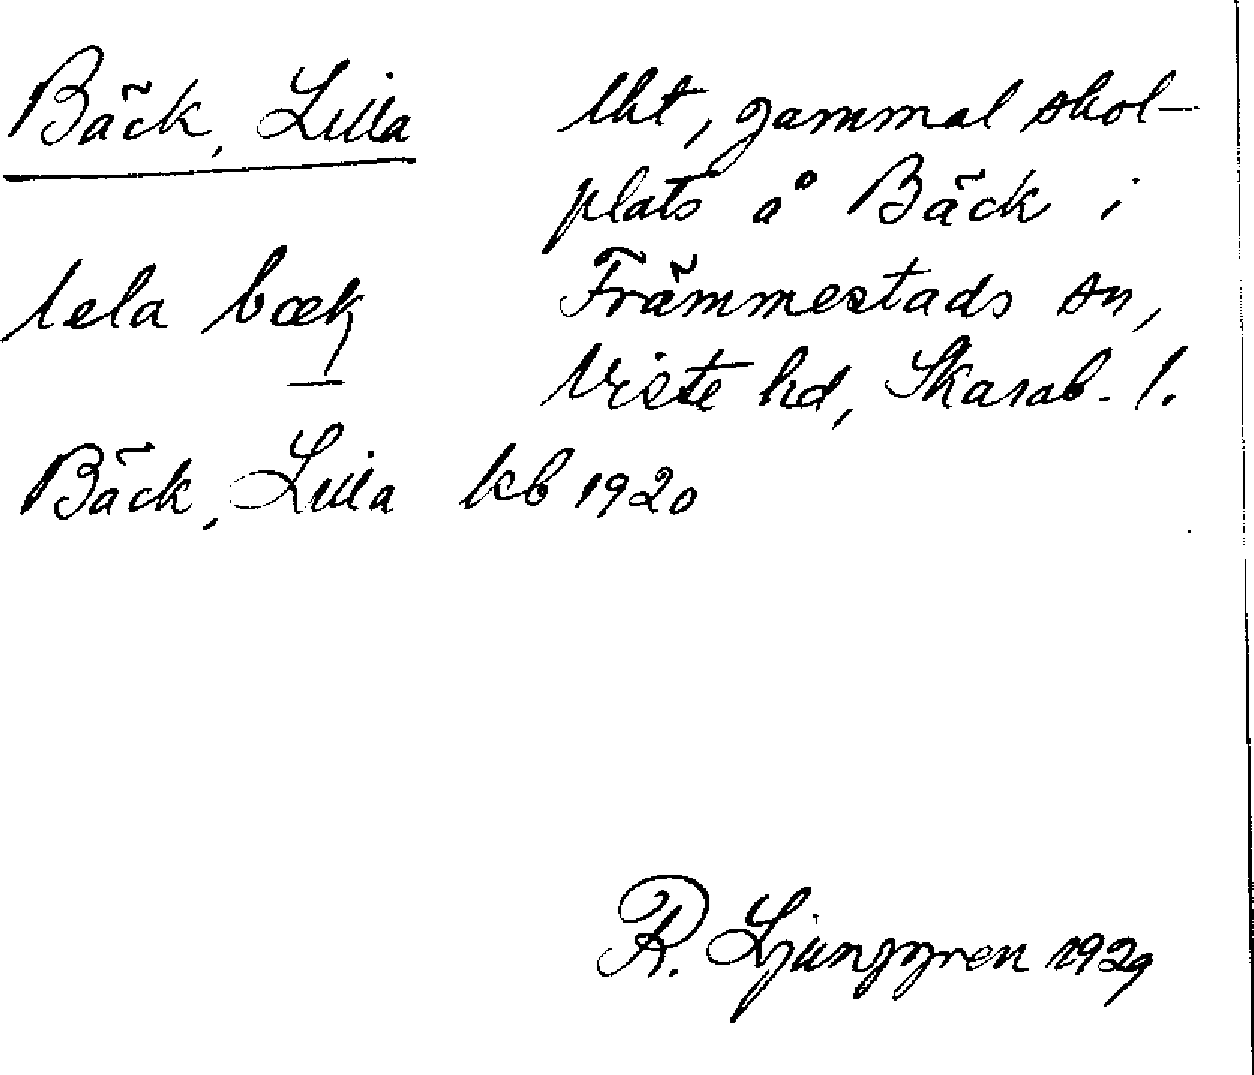 Bäck, Lilla
lht, gammal skol-
plats å Bäck i
Främmestads sn,
Viste hd, Skarab. l.
lela bœk
Bäck, Lilla kb 1920
R. Ljunggren 1929